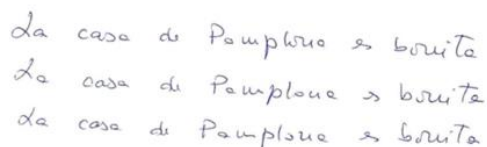 La casa de Pamplona es bonita
La casa de Pamplona es bonita
La casa de Pamplona es bonita